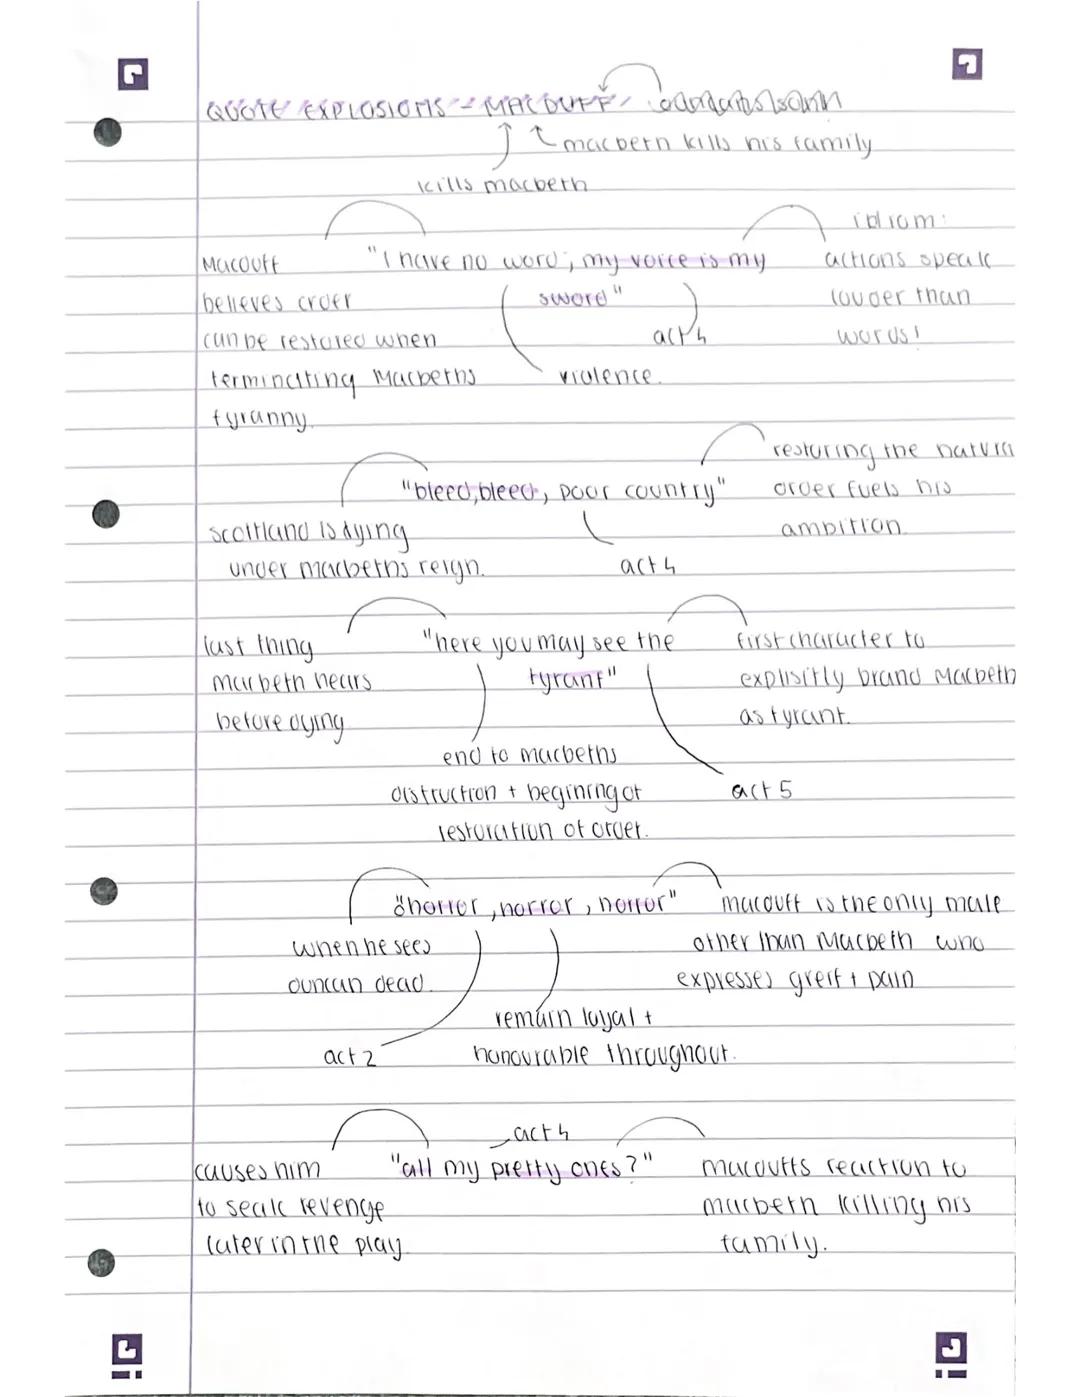 QUOTE EXPLOSIONS - MACDUFF
macbeth kills his family
kills macbeth
idiom:
Macduff "I have no word; my voice is my actions speak
believes order sword" louder than
can be restored when act 4 words!
terminating Macbeths violence.
tyranny.
restoring the natura
"bleed, bleed, poor country" order fuels his
scottland is dying ambition.
under macbeths reign. act 4
last thing "here you may see the first character to
macbeth hears tyrant" explisitly brand Macbeth
before dying as tyrant.
end to macbeths
distruction + begining of act 5
restoration of order.
"horror, horror, horror" macduff is the only male
when he sees other than Macbeth who
duncan dead. expresses greif + pain
remain loyal +
act 2 honourable throughout.
act 4
causes him "all my pretty ones?" macduffs reaction to
to seak revenge macbeth killing his
later in the play family.